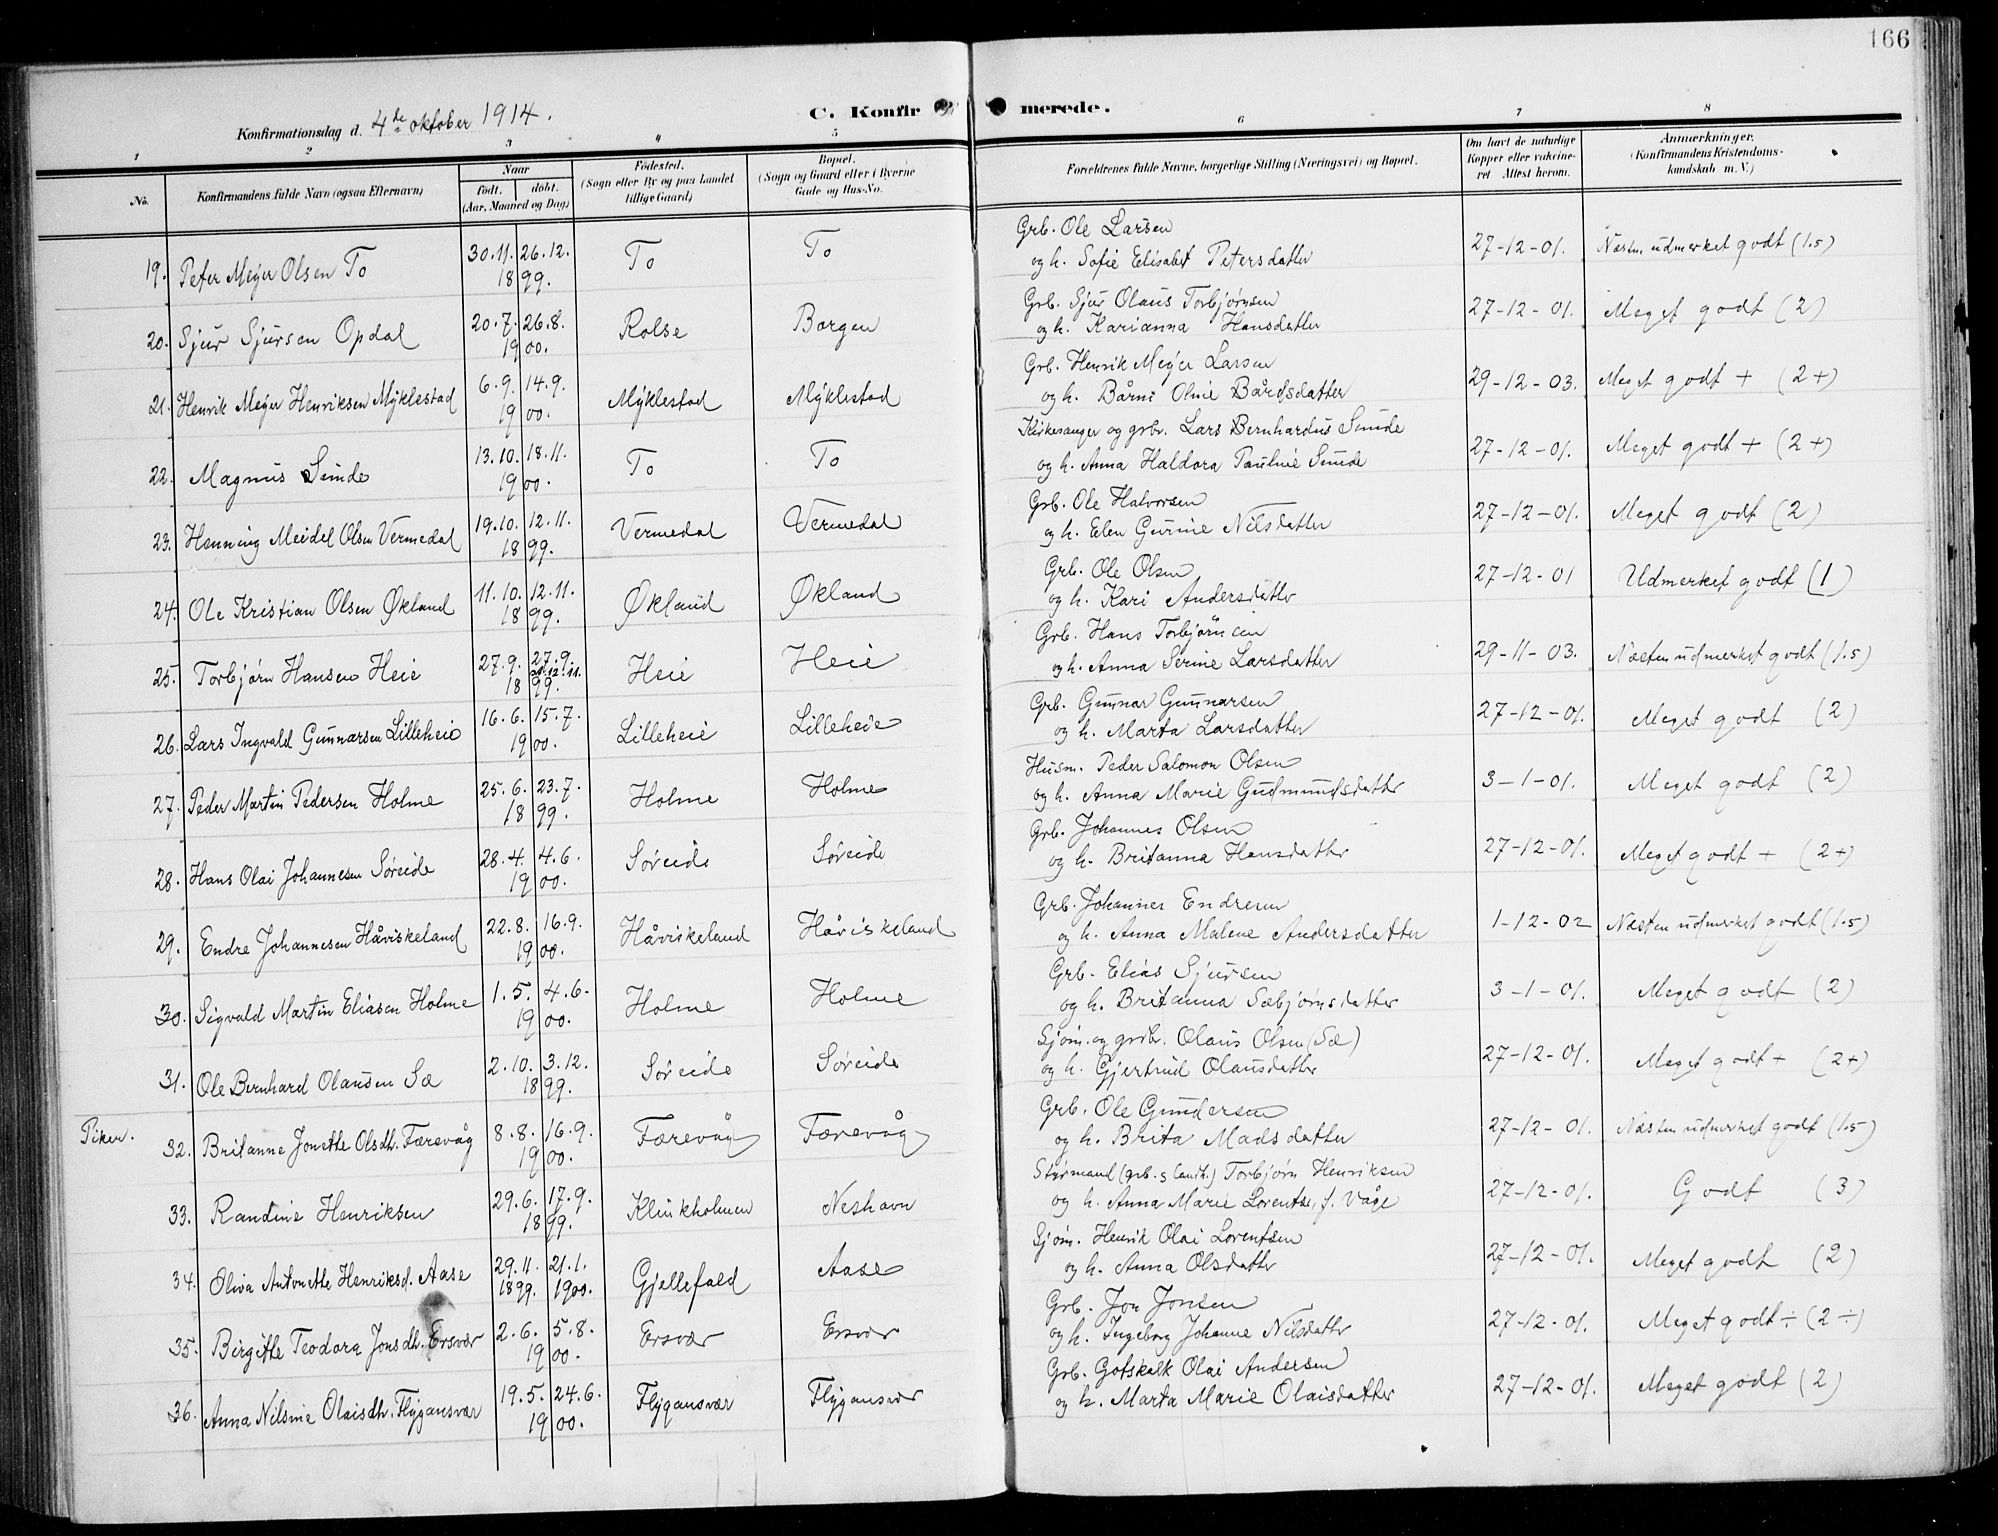 166
Konfirmationsdag d. 4de oktober 1914. C. Konfirmerede.
1 2 3 4 5 6 7 8
No. Konfirmandens fulde Navn (ogsaa Efternavn) Naar født. døbt. (Aar, Maaned og Dag) Fødested. (Sogn eller By og paa Landet tillige Gaard) Bopæl. (Sogn og Gaard eller i Byerne Gade og Hus-No. Forældrenes fulde Navne, borgerlige Stilling (Næringsvei) og Bopæl. Om havt de naturlige Kopper eller vakcineret. Attest herom. Anmærkninger. (Konfirmandens Kristendomskundskab m. V.)
19. Peter Meyer Olsen To 30.11. 26.12. 1899. To To Grb. Ole Larsen 27-12-01. Næsten udmerket godt (1.5)
og h. Sofie Elisabet Petersdatter
20. Sjur Sjursen Opdal 20.7. 26.8. 1900. Rolse Borgen Grb. Sjur Olaus Torbjørnsen 27-12-01. Meget godt (2)
og h. Karianna Hansdatter
21. Henrik Meyer Henriksen Myklestad 6.9. 14.9. 1900. Myklestad Myklestad Grb. Henrik Meyer Larsen 29-12-03. Meget godt + (2+)
og h. Bårni Oline Bårdsdatter
22. Magnus Sunde 13.10. 18.11. 1900. To To Kirkesanger og grbr. Lars Bernhardus Sunde 27-12-01. Meget godt + (2+)
og h. Anna Haldora Pauline Sunde
23. Henning Meidel Olsen Vermedal 19.10. 12.11. 1899. Vermedal Vermedal Grb. Ole Halvorsen 27-12-01. Meget godt (2)
og h. Elen Gurine Nilsdatter
24. Ole Kristian Olsen Økland 11.10. 12.11. 1899. Økland Økland Grb. Ole Olsen 27-12-01 Udmerket godt (1)
og h. Kari Andersdatter
25. Torbjørn Hansen Heie 27.9. 27.9. 1899. Heie Heie Grb. Hans Torbjørnsen 29-11-03. Næsten udmerket godt (1.5)
og h. Anna Serine Larsdatter
26. Lars Ingvald Gunnarsen Lilleheie 16.6. 15.7. 1900. Lilleheie Lilleheie Grb. Gunnar Gunnarsen 27-12-01. Meget godt (2)
og h. Marta Larsdatter
27. Peder Martin Pedersen Holme 25.6. 23.7. 1899. Holme Holme Husm. Peder Salomon Olsen 3-1-01. Meget godt (2)
og h. Anna Marie Gudmundsdatter
28. Hans Olai Johannesen Søreide 28.4. 4.6. 1900. Søreide Søreide Grb. Johannes Olsen 27-12-01. Meget godt + (2+)
og h. Britanna Hansdatter
29. Endre Johannesen Håviskeland 22.8. 16.9. 1900. Håviskeland Håviskeland Grb. Johannes Endresen 1-12-02 Næsten udmerket godt (1.5)
og h. Anna Malene Andersdatter
30. Sigvald Martin Eliasen Holme 1.5. 4.6. 1900. Holme Holme Grb. Elias Sjursen 3-1-01. Meget godt (2)
og h. Britanna Sæbjørnsdatter
31. Ole Bernhard Olausen Sæ 2.10. 3.12. 1899. Søreide Søreide Sjøm. og grdbr. Olaus Olsen (Sæ) 27-12-01. Meget godt + (2+)
og h. Gjertrud Olausdatter
Piker. 32. Britanne Jonette Olsdtr. Færevåg 8.8. 16.9. 1900. Færevåg Færevåg Grb. Ole Gundersen 27-12-01. Næsten udmerket godt (1.5)
og h. Brita Madsdatter
33. Randine Henriksen 29.6. 17.9. 1899. Klinkholmen Neshavn Styrmand (grb. s landh.) Torbjørn Henriksen 27-12-01. Godt (3)
og h. Anna Marie Lorentse, f. Våge
34. Oliva Antonette Henriksd. Aase 29.11. 1899. 21.1. 1900. Gjellefald Aase Sjøm. Henrik Olai Lorentsen 27-12-01. Meget godt (2)
og h. Anna Olsdatter
35. Birgitte Teodora Jonsdtr. Ersvær 2.6. 5.8. 1900. Ersvær Ersvær Grb. Jon Jonsen 27-12-01. Meget godt ÷ (2 ÷)
og h. Ingeborg Johanne Nilsdatter
36. Anna Nilsine Olaisdtr. Flygansvær 19.5. 24.6. 1900. Flygansvær Flygansvær Grb. Gotskalk Olai Andersen 27-12-01. Meget godt (2)
og h. Marta Marie Olaisdatter